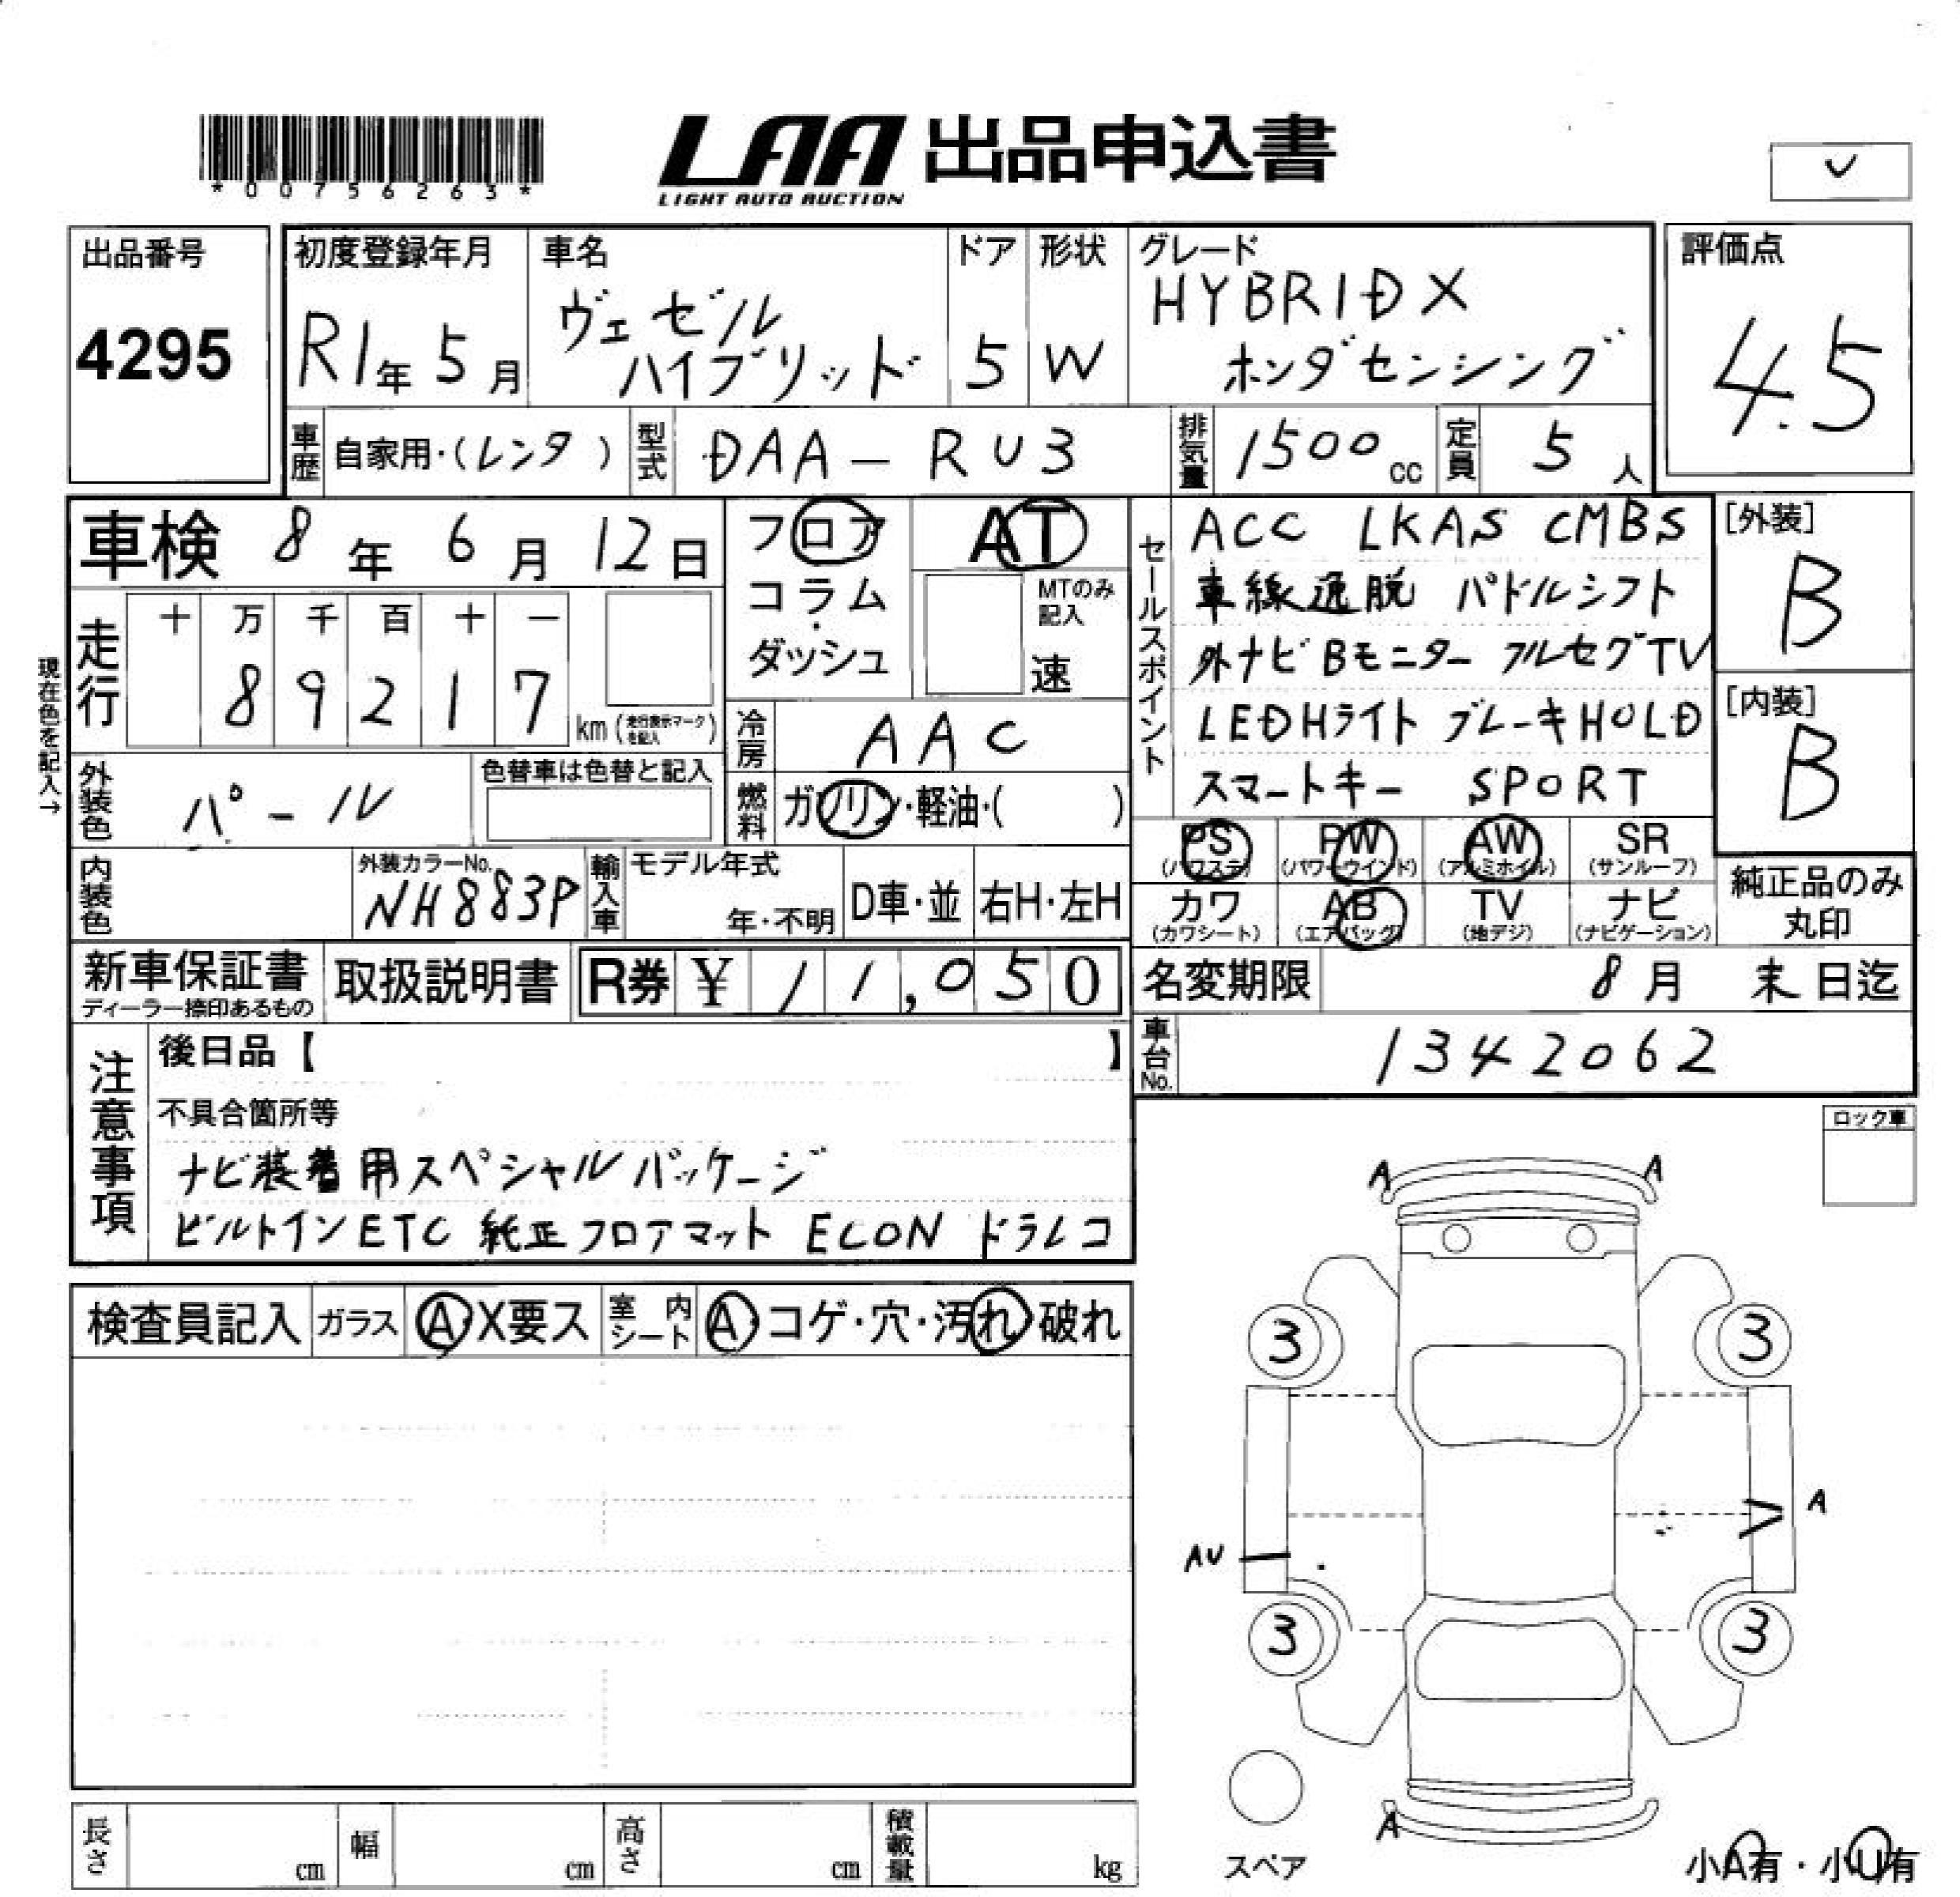 *00756263*
LAA 出品申込書
LIGHT AUTO AUCTION
出品番号
4295
初度登録年月
R1年 5月
車名
ヴェゼル
ハイブリッド
ドア
5
形状
W
グレード
HYBRID X
ホンダセンシング
評価点
4.5
車歴 自家用・(レンタ)
型式 DAA-RU3
排気量 1500cc
定員 5人
車検 8年 6月 12日
フロア
コラム
・
ダッシュ
AT
MTのみ
記入
速
現在色を記入→
走行 十 万 千 百 十 一
89217 km (走行表示マークを記入)
冷房 AAC
外装色 パール
色替車は色替と記入
燃料 ガソリン・軽油・( )
内装色
外装カラーNo.
NH883P
輸入車 モデル年式
年・不明
D車・並
右H・左H
セールスポイント
ACC LKAS CMBS
車線逸脱 パドルシフト
外ナビ Bモニター フルセグTV
LEDHライト ブレーキHOLD
スマートキー SPORT
[外装]
B
[内装]
B
PS (パワステ)
PW (パワーウインド)
AW (アルミホイル)
SR (サンルーフ)
カワ (カワシート)
AB (エアバッグ)
TV (地デジ)
ナビ (ナビゲーション)
純正品のみ
丸印
新車保証書
ディーラー捺印あるもの
取扱説明書
R券 ¥ 11,050
名変期限 8月 末日迄
車台No. 1342062
注意事項
後日品【 】
不具合箇所等
ナビ装着用スペシャルパッケージ
ビルトインETC 純正フロアマット ECON ドラレコ
ロック車
検査員記入
ガラス A・X要ス
室内シート A・コゲ・穴・汚れ・破れ
A A
3 3
A
AU
3 3
A
スペア
小A有・小U有
長さ cm
幅 cm
高さ cm
積載量 kg